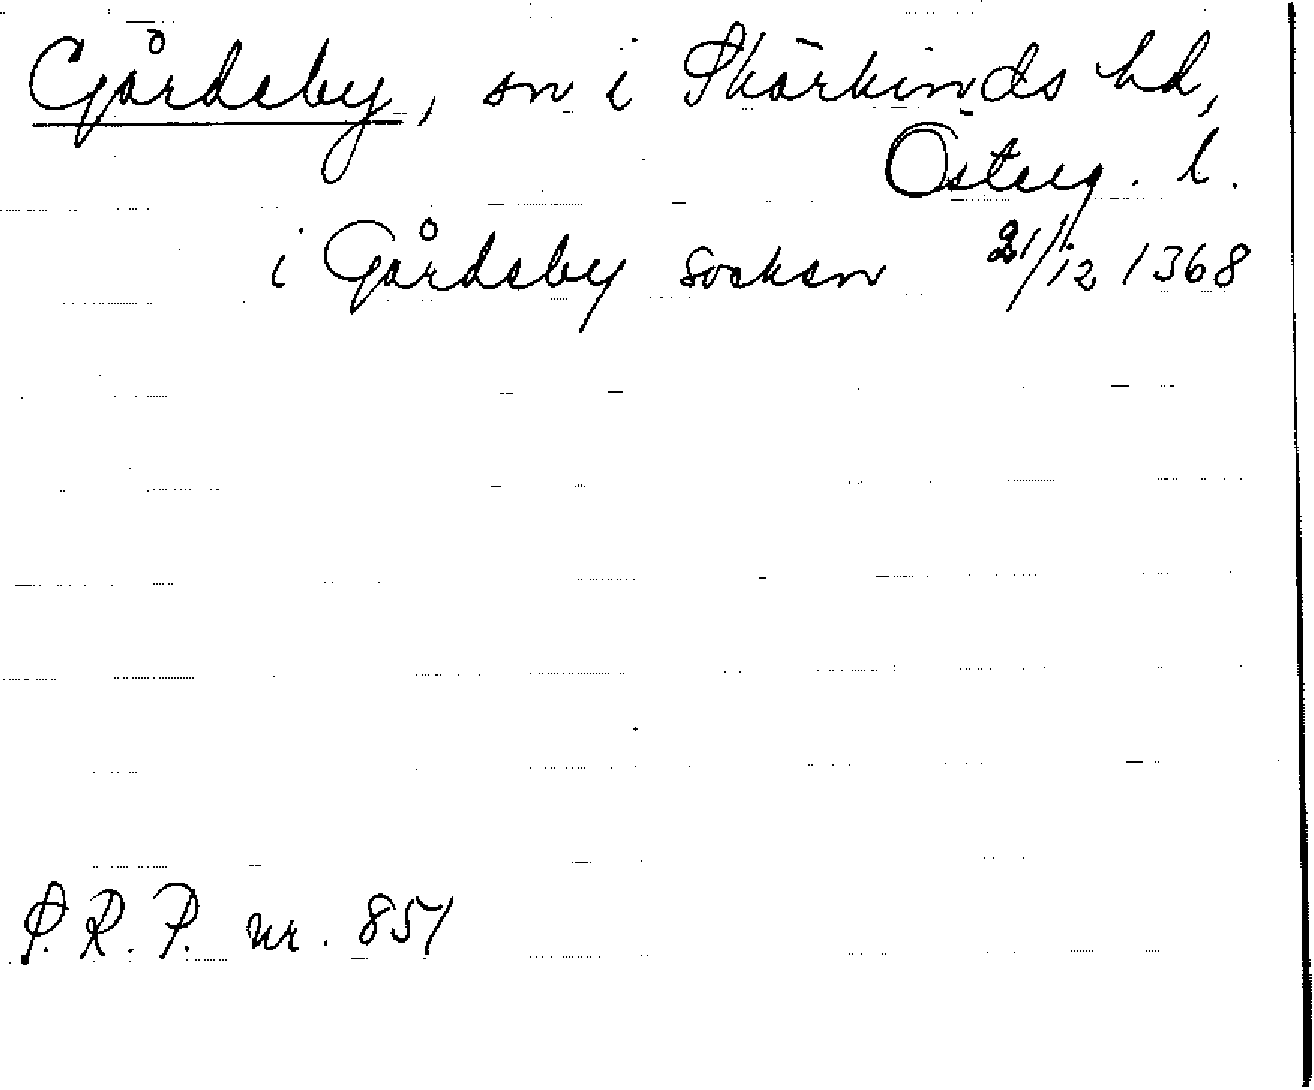 Gårdsby, sn i Skärkinds hd,
Österg. l.
i Gårdsby sockn 21/12 1368
S.R.P. nr. 851